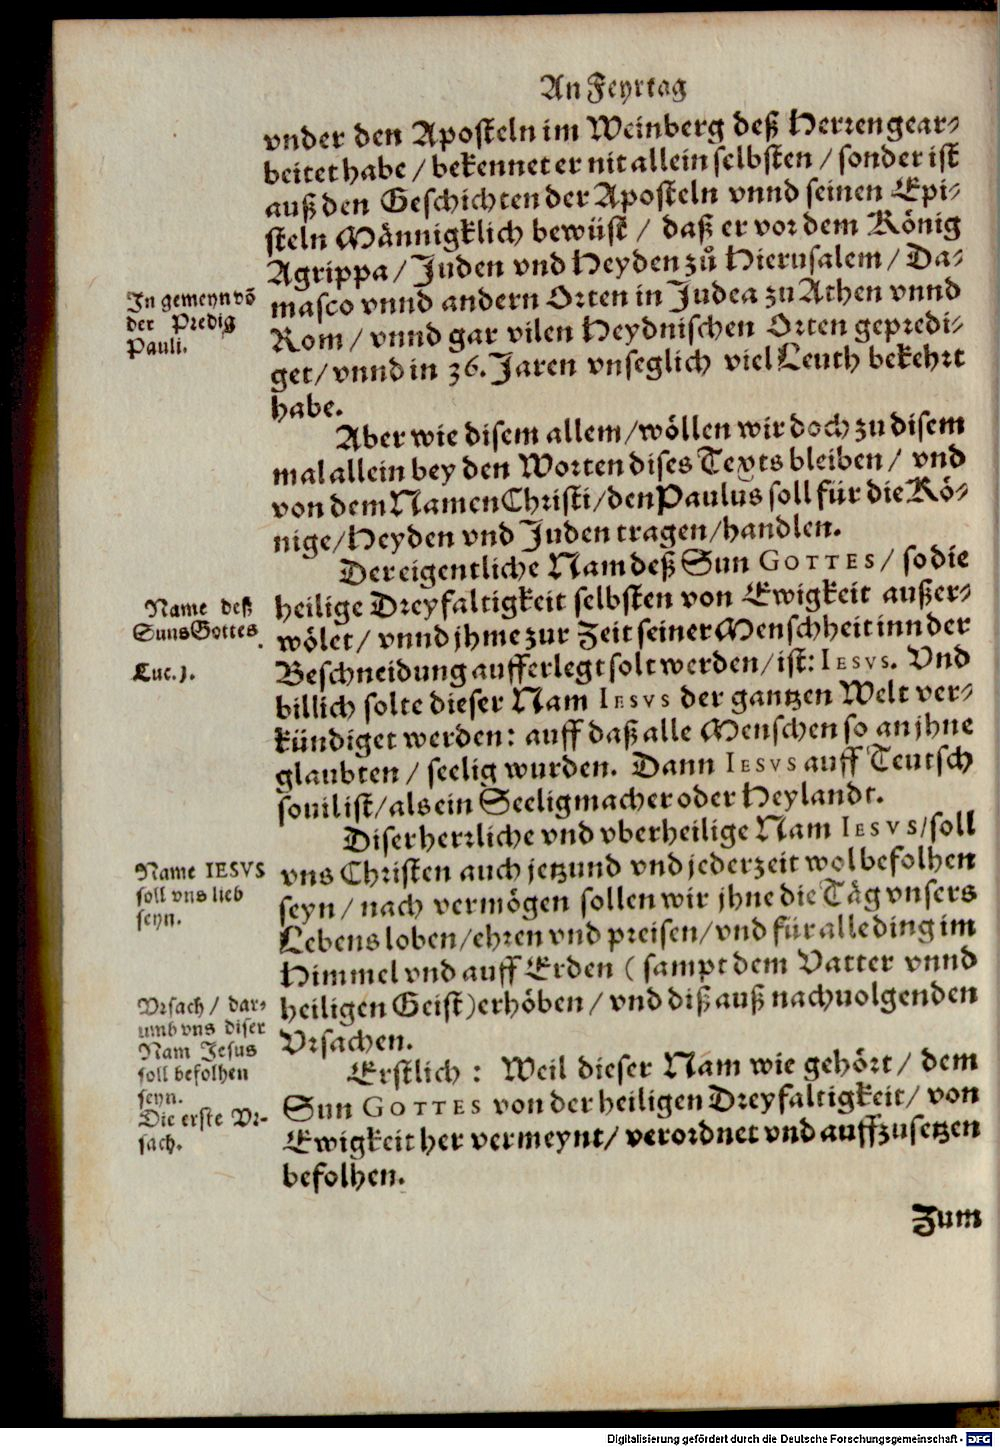 An Feyrtag
vnder den Aposteln im Weinberg deß Herren gear-
beitet habe / bekennet er nit allein selbsten / sonder ist
auß den Geschichten der Aposteln vnnd seinen Epi-
steln Männigklich bewüst / daß er vor dem König
Agrippa / Juden vnd Heyden zů Hierusalem / Da-
masco vnnd andern Orten in Judea zu Athen vnnd
Rom / vnnd gar vilen Heydnischen Orten gepredi-
get / vnnd in 36. Jaren vnseglich viel Leuth bekehrt
habe.
In gemeyn võ
der Predig
Pauli.
Aber wie disem allem / wöllen wir doch zu disem
mal allein bey den Worten dises Texts bleiben / vnd
von dem Namen Christi / den Paulus soll für die Kö-
nige / Heyden vnd Juden tragen / handlen.
Der eigentliche Nam deß Sun GOTTES / so die
heilige Dreyfaltigkeit selbsten von Ewigkeit außer-
wölet / vnnd jhme zur Zeit seiner Menschheit inn der
Beschneidung aufferlegt solt werden / ist: IESVS. Vnd
billich solte dieser Nam IESVS der gantzen Welt ver-
kündiget werden: auff daß alle Menschen so an jhne
glaubten / seelig wurden. Dann IESVS auff Teutsch
souil ist / als ein Seeligmacher oder Heylandt.
Name deß
Suns Gottes.
Luc. j.
Diser herrliche vnd vberheilige Nam IESVS / soll
vns Christen auch jetzund vnd jederzeit wol befolhen
seyn / nach vermögen sollen wir jhne die Täg vnsers
Lebens loben / ehren vnd preisen / vnd für alle ding im
Himmel vnd auff Erden ( sampt dem Vatter vnnd
heiligen Geist) erhöben / vnd diß auß nachuolgenden
Vrsachen.
Name IESVS
soll vns lieb
seyn.
Vrsach / dar-
umb vns diser
Nam Jesus
soll befolhen
seyn.
Erstlich : Weil dieser Nam wie gehört / dem
Sun GOTTES von der heiligen Dreyfaltigkeit / von
Ewigkeit her vermeynt / verordnet vnd auffzusetzen
befolhen.
Die erste Vr-
sach.
Zum
Digitalisierung gefördert durch die Deutsche Forschungsgemeinschaft - DFG